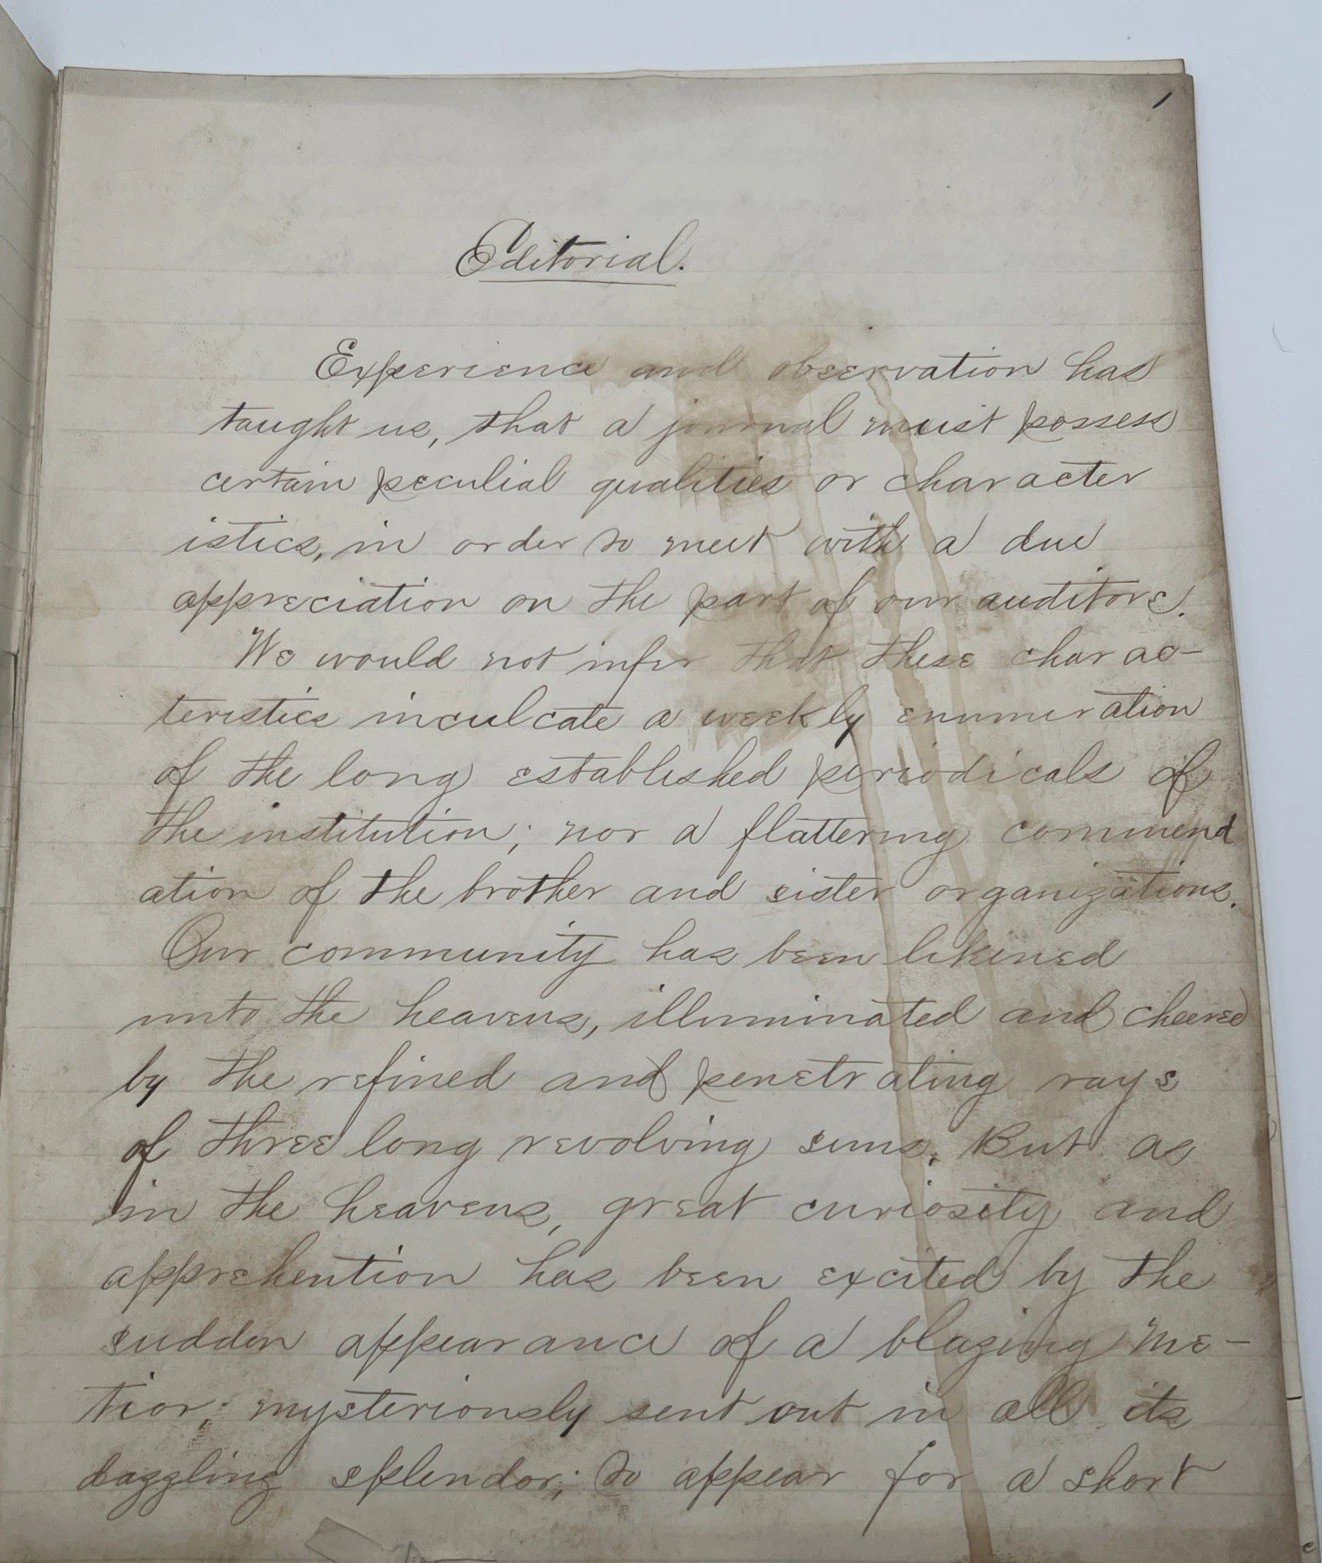 1
Editorial.
Experience and observation has
taught us, that a journal must possess
certain peculial qualities or character
istics, in order to meet with a due
appreciation on the part of our auditors.
We would not infer that these charac-
teristics inculcate a weekly enumeration
of the long established periodicals of
the institution; nor a flattering commend
ation of the brother and sister organizations.
Our community has been likened
unto the heavens, illuminated and cheered
by the refined and penetrating rays
of three long revolving suns. But as
in the heavens, great curiosity and
apprehention has been excited by the
sudden appearance of a blazing me-
tior; mysteriously sent out in all its
dazzling splendor; to appear for a short